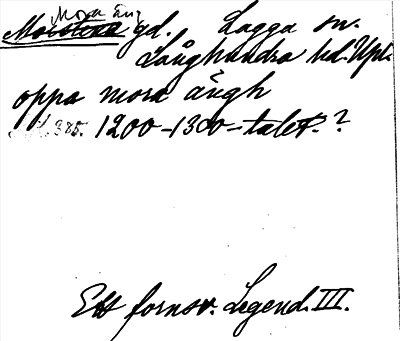 Mora äng
gd. Lagga sn.
Långhundra hd. Upl.
oppa mora ängh
385. 1200-1300-talet.?
Ett fornsv. Legend. III.